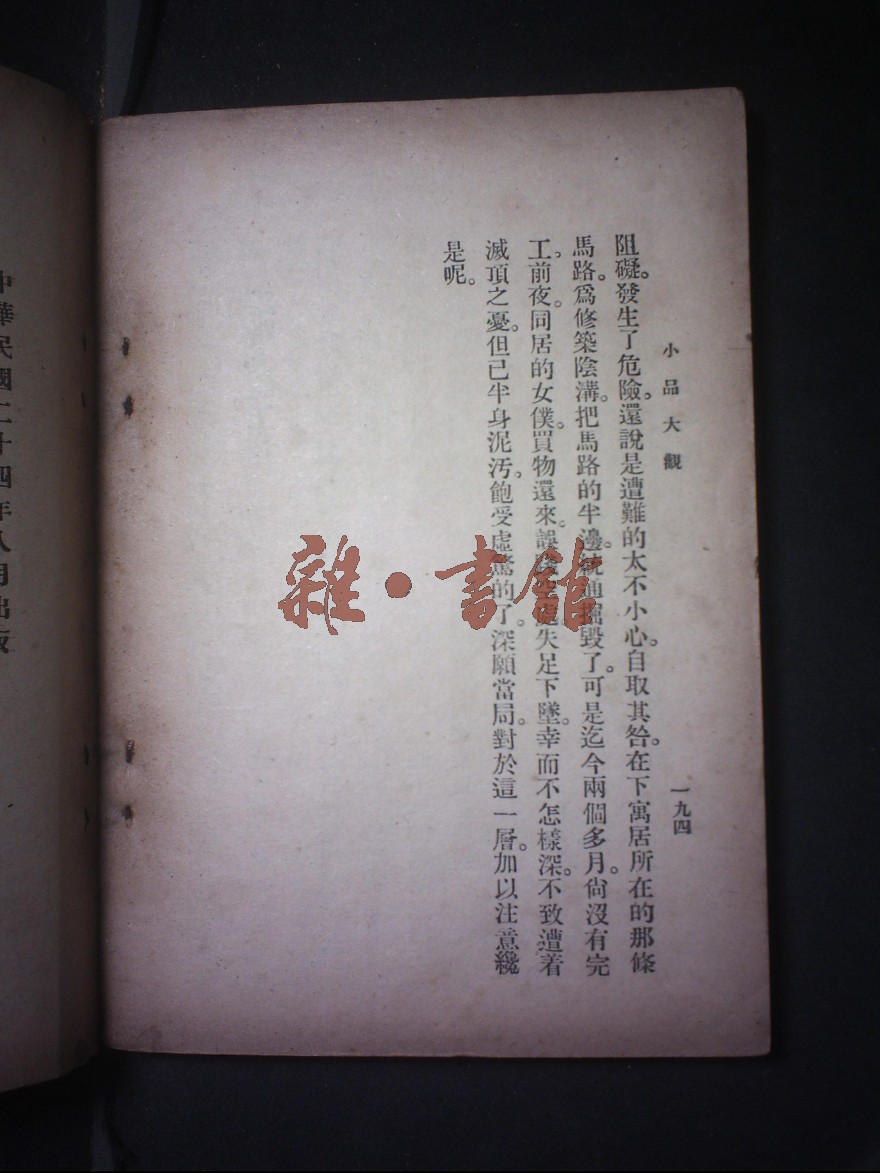 小品大觀
一九四
阻礙。發生了危險。還說是遭難的太不小心。自取其咎。在下寓居所在的那條
馬路。爲修築陰溝。把馬路的半邊。掘毀了。可是迄今兩個多月。尙沒有完
工。前夜。同居的女僕。買物還來。誤失足下墜。幸而不怎樣深。不致遭着
滅頂之憂。但已半身泥汚。飽受虛驚的了。深願當局。對於這一層。加以注意纔
是呢。
中華民國二十四年八月出版
雜·書館